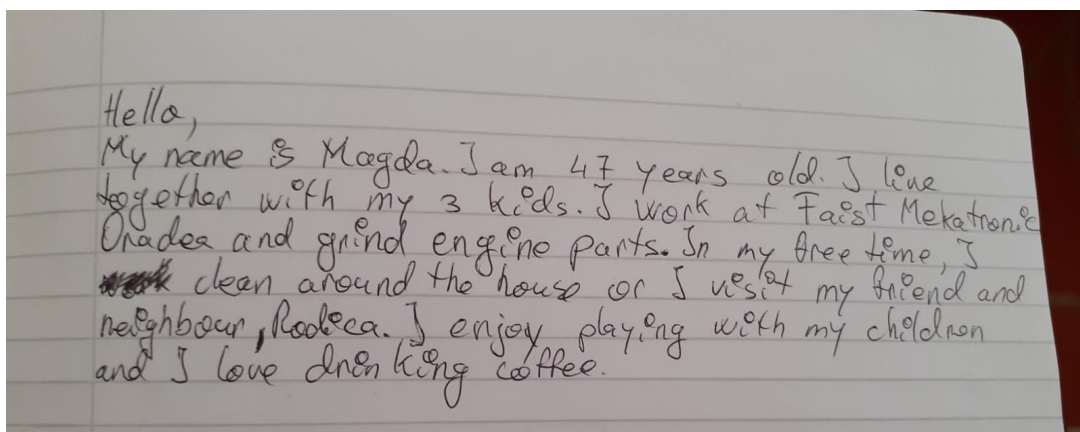 Hello,
My name is Magda. I am 47 years old. I live
together with my 3 kids. I work at Faist Mekatronic
Oradea and grind engine parts. In my free time, I
clean around the house or I visit my friend and
neighbour, Rodica. I enjoy playing with my children
and I love drinking coffee.